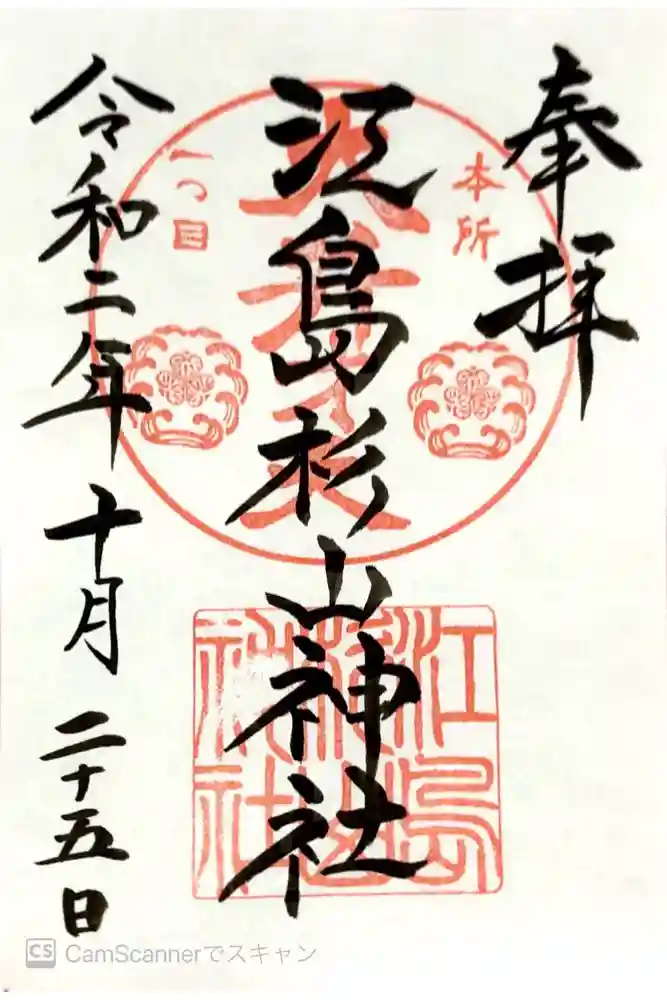 奉拝
本所
一つ目
江島杉山神社
令和二年十月二十五日
江島杉山神社
CS CamScannerでスキャン